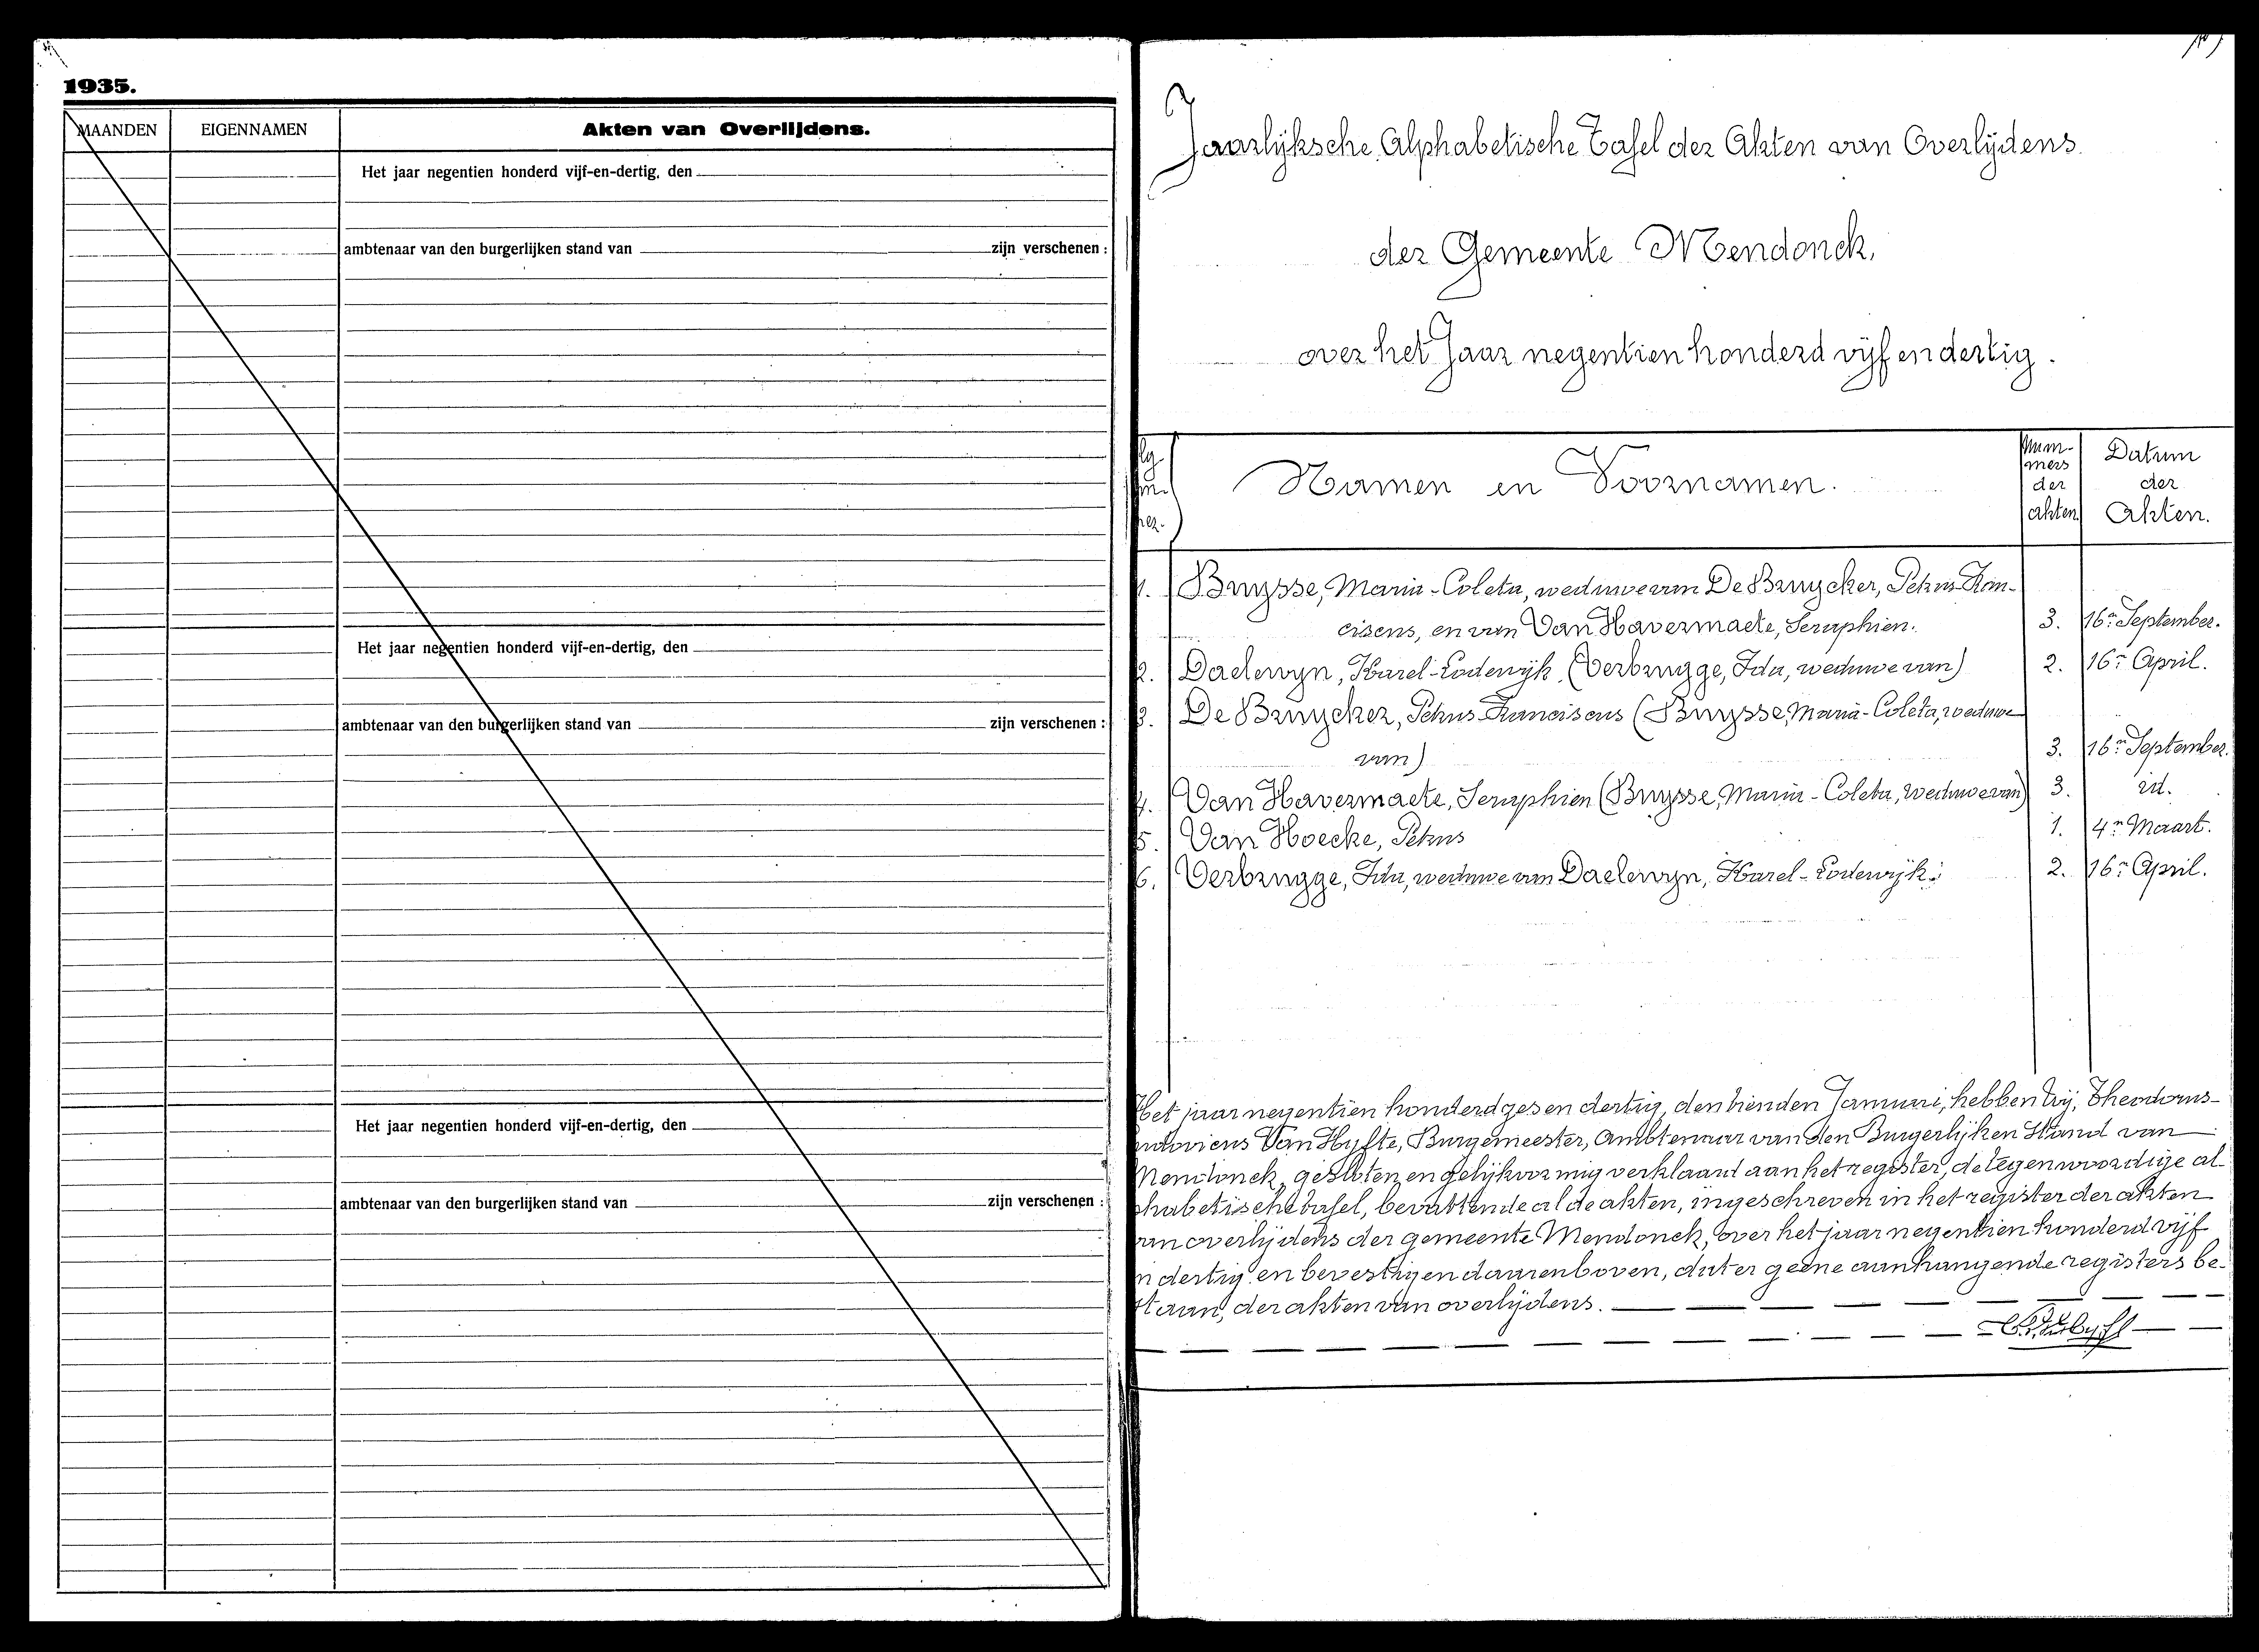 1935.
MAANDEN
EIGENNAMEN
Akten van Overlijdens.
Het jaar negentien honderd vijf-en-dertig, den
ambtenaar van den burgerlijken stand van zijn verschenen :
Het jaar negentien honderd vijf-en-dertig, den
ambtenaar van den burgerlijken stand van zijn verschenen :
Het jaar negentien honderd vijf-en-dertig, den
ambtenaar van den burgerlijken stand van zijn verschenen :
Jaarlijksche Alphabetische Tafel der Akten van Overlijdens
der Gemeente Mendonck,
over het Jaar negentien honderd vijf en dertig.
Namen en Voornamen.
Num-
mers
der
akten
Datum
der
Akten.
1. Bruysse, Maria-Coleta, weduwe van De Bruycker, Petrus-Fran-
ciscus, en van Van Havermaete, Seraphien. 3. 16n September.
2. Daelewyn, Karel-Lodewijk (Verbrugge, Ida, weduwe van) 2. 16n April.
3. De Bruycker, Petrus-Franciscus (Bruysse, Maria-Coleta, weduwe
van) 3. 16n September.
4. Van Havermaete, Seraphien (Bruysse, Maria-Coleta, weduwe van) 3. id.
5. Van Hoecke, Petrus 1. 4n Maart.
6. Verbrugge, Ida, weduwe van Daelewyn, Karel-Lodewijk. 2. 16n April.
Het jaar negentien honderd zes en dertig, den tienden Januari, hebben Wij, Theodorus-
Van Hyfte, Burgemeester, Ambtenaar van den Burgerlijken Stand van
Mendonck, gesloten en gelijkvormig verklaard aan het register, de tegenwoordige al-
phabetische tafel, bevattende al de akten, ingeschreven in het register der akten
van overlijdens der gemeente Mendonck, over het jaar negentien honderd vijf
en dertig en bevestigen daarenboven, dat er geene aanhangende registers be-
staan, der akten van overlijdens.